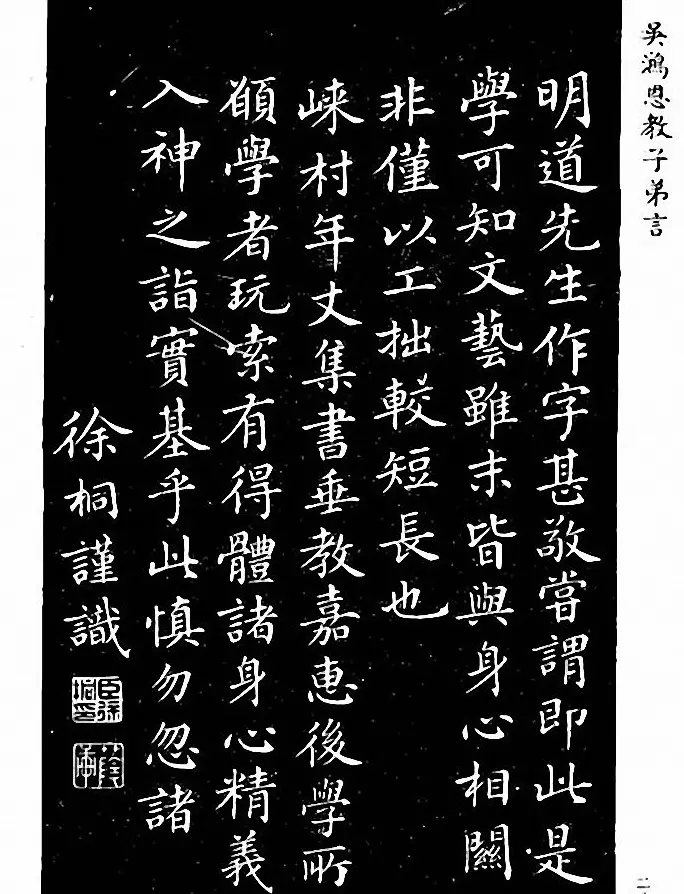 吳鴻恩教子弟言
明道先生作字甚敬嘗謂即此是
學可知文藝雖末皆與身心相關
非僅以工拙較短長也
崍村年丈集書垂教嘉惠後學所
願學者玩索有得體諸身心精義
入神之詣實基乎此慎勿忽諸
徐桐謹識
臣徐桐印